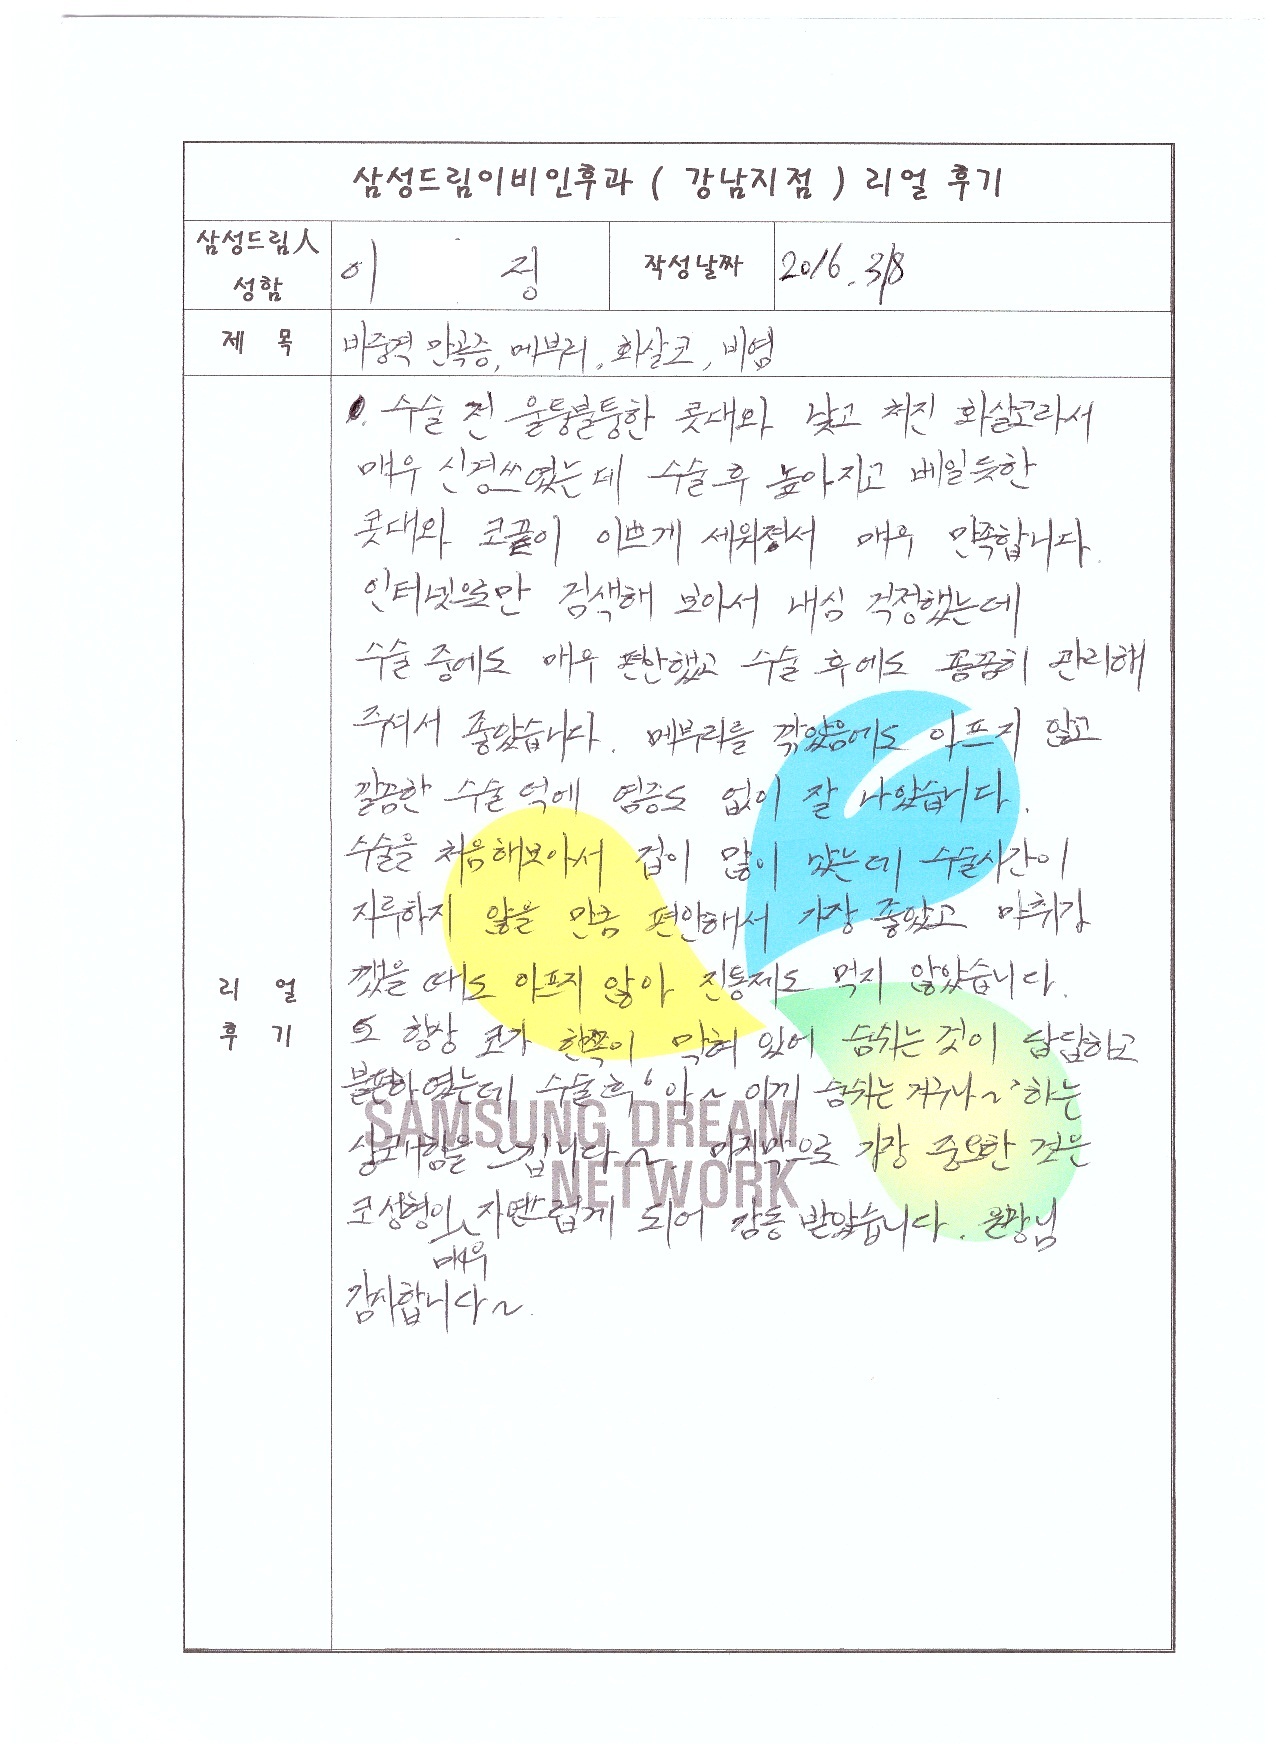 삼성드림이비인후과 ( 강남지점 ) 리얼 후기
삼성드림人 성함
이 정
작성날짜
2016. 3/8
제 목
비중격 만곡증, 메부리, 화살코, 비염
리 얼 후 기
수술 전 울퉁불퉁한 콧대와 낮고 쳐진 화살코라서
매우 신경쓰였는데 수술 후 높아지고 베일듯한
콧대와 코끝이 이쁘게 세워졌서 매우 만족합니다.
인터넷으로만 검색해 보아서 내심 걱정했는데
수술 중에도 매우 편안했고 수술 후에도 꼼꼼히 관리해
주셔서 좋았습니다. 메부리를 깎았음에도 아프지 않고
깔끔한 수술 덕에 염증도 없이 잘 나았습니다.
수술을 처음해보아서 겁이 많이 났는데 수술시간이
지루하지 않을 만큼 편안해서 가장 좋았고 마취가
깼을 때도 아프지 않아 진통제도 먹지 않았습니다.
또 항상 코가 한쪽이 막혀 있어 숨쉬는 것이 답답하고
불편하였는데 수술후 '아~ 이게 숨쉬는 거구나~' 하는
상쾌함을 느낍니다~. 마지막으로 가장 중요한 것은
코성형이 매우 자연스럽게 되어 감동 받았습니다. 원장님
감사합니다~.
SAMSUNG DREAM
NETWORK